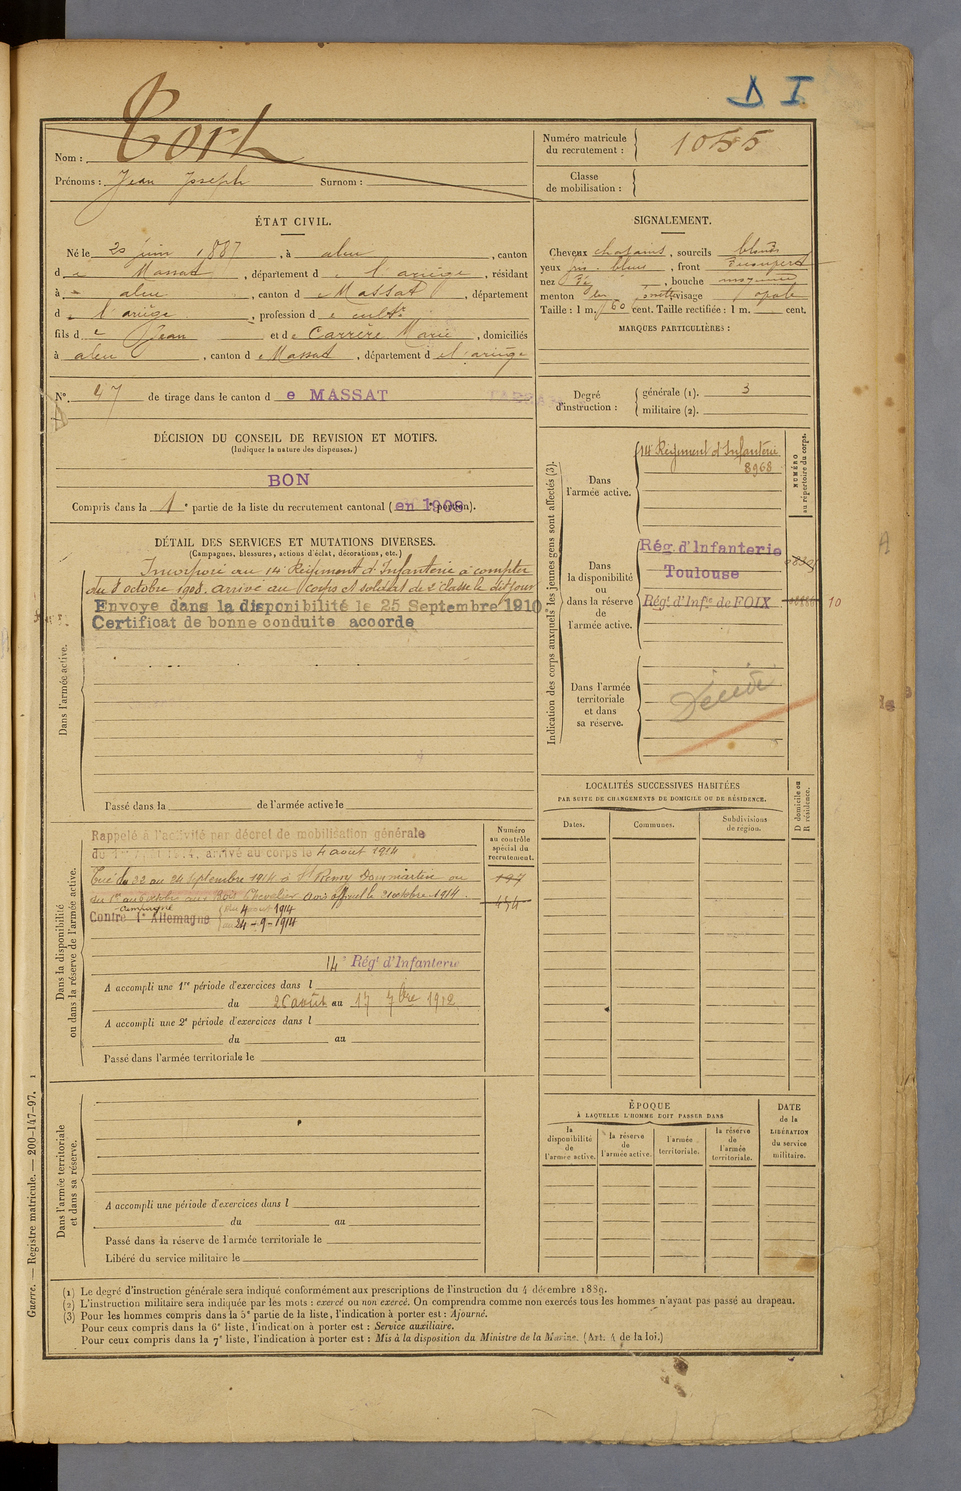 D I
Nom : Cort
Prénoms : Jean Joseph Surnom :
Numéro matricule
du recrutement : 1055
Classe
de mobilisation :
ÉTAT CIVIL.
Né le 20 juin 1887, à aleu, canton
de Massat, département de l'ariège, résidant
à aleu, canton de Massat, département
d l'ariège, profession de cultr
fils de Jean et de Carrère Marie, domiciliés
à aleu, canton de Massat, département d l'ariège
No. 47 de tirage dans le canton de MASSAT
SIGNALEMENT.
Cheveux chatains, sourcils blonds
yeux gris-bleus, front
nez, bouche moyenne
menton, visage
Taille : 1 m. 60 cent. Taille rectifiée : 1 m. cent.
MARQUES PARTICULIÈRES :
Degré
d'instruction :
générale (1). 3
militaire (2).
DÉCISION DU CONSEIL DE REVISION ET MOTIFS.
(Indiquer la nature des dispenses.)
BON
Compris dans la 1e partie de la liste du recrutement cantonal (en 1908 portion).
DÉTAIL DES SERVICES ET MUTATIONS DIVERSES.
(Campagnes, blessures, actions d'éclat, décorations, etc.)
Dans l'armée active.
Incorporé au 14e Régiment d'Infanterie à compter
du 8 octobre 1908. arrivé au corps et soldat de 2e classe le dit jour
Envoye dans la disponibilité le 25 Septembre 1910.
Certificat de bonne conduite accorde
Passé dans la de l'armée active le
Indication des corps auxquels les jeunes gens sont affectés (3).
NUMÉRO
au répertoire du corps.
Dans
l'armée active.
14e Régiment d'Infanterie
8968
Dans
la disponibilité
ou
dans la réserve
de
l'armée active.
Rég. d'Infanterie
Toulouse
Régt. d'Infie de FOIX
10
Dans l'armée
territoriale
et dans
sa réserve.
Décédé
LOCALITÉS SUCCESSIVES HABITÉES
PAR SUITE DE CHANGEMENTS DE DOMICILE OU DE RÉSIDENCE.
Dates.
Communes.
Subdivisions
de région.
D domicile ou
R résidence.
Dans la disponibilité
ou dans la réserve de l'armée active.
Numéro
au contrôle
spécial du
recrutement.
Rappelé à l'activité par décret de mobilisation générale
du 1er août 1914, arrivé au corps le 4 aout 1914
Tué du 22 au 24 septembre 1914 à St Remy Dommartin ou
Avis officiel le 21 octobre 1914.
Campagne
Contre l'Allemagne du 4 août 1914
au 24-9-1914
14e Régt d'Infanterie
A accompli une 1re période d'exercices dans l
du 26 août au 17 7bre 1912
A accompli une 2e période d'exercices dans l
du au
Passé dans l'armée territoriale le
Dans l'armée territoriale
et dans sa réserve.
A accompli une période d'exercices dans l
du au
Passé dans la réserve de l'armée territoriale le
Libéré du service militaire le
ÉPOQUE
À LAQUELLE L'HOMME DOIT PASSER DANS
la
disponibilité
de
l'armée active.
la réserve
de
l'armée active.
l'armée
territoriale.
la réserve
de
l'armée
territoriale.
DATE
de la
LIBÉRATION
du service
militaire.
Guerre. — Registre matricule. — 200-147-97. 1
(1) Le degré d'instruction générale sera indiqué conformément aux prescriptions de l'instruction du 4 décembre 1889.
(2) L'instruction militaire sera indiquée par les mots : exercé ou non exercé. On comprendra comme non exercés tous les hommes n'ayant pas passé au drapeau.
(3) Pour les hommes compris dans la 5e partie de la liste, l'indication à porter est : Ajourné.
Pour ceux compris dans la 6e liste, l'indication à porter est : Service auxiliaire.
Pour ceux compris dans la 7e liste, l'indication à porter est : Mis à la disposition du Ministre de la Marine. (Art. 4 de la loi.)